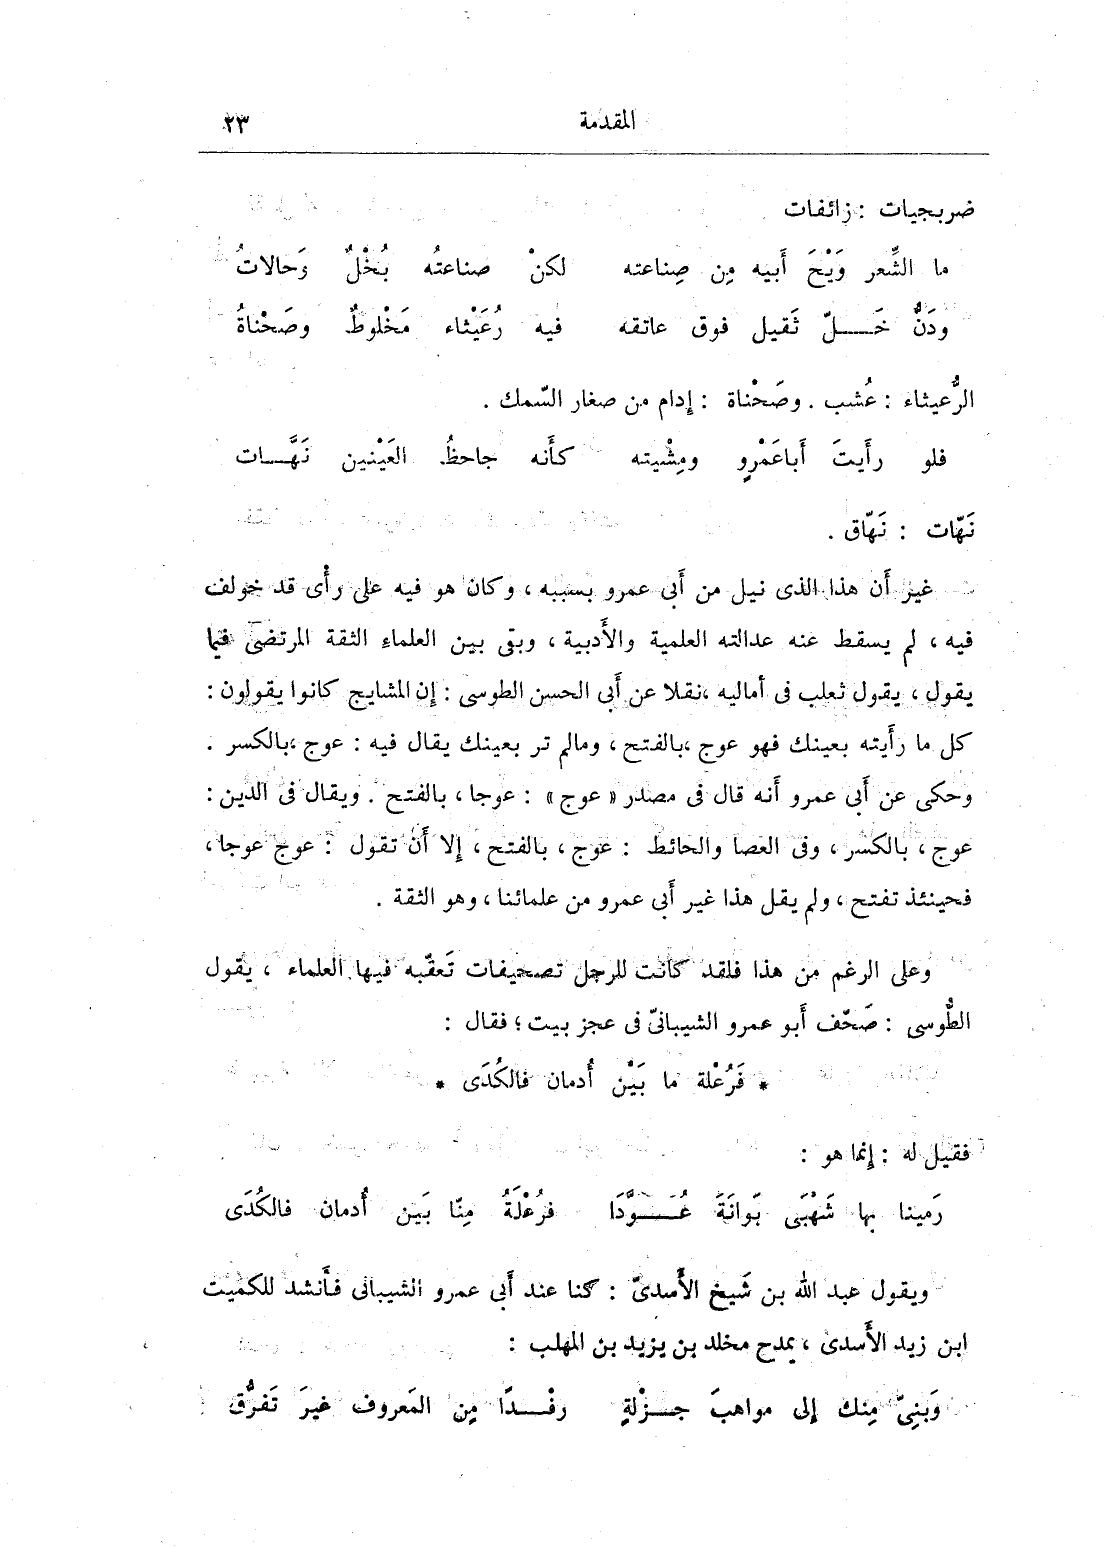 المقدمة ٢٣
ضربجيات : زائفات
ما الشِّعر وَيْحَ أَبيه مِن صِناعته لكنْ صناعتُه بُخْلٌ وَحالاتُ
ودَنُّ خَـــلّ ثَقيل فوق عاتقه فيه رُعَيْثاء مَخْلوطٌ وصَحْناةُ
الرُّعيثاء : عُشب . وصَحْناة : إدام من صغار السّمك .
فلو رأَيتَ أَباعَمْرٍو ومِشْيته كأَنه جاحظُ العَيْنين نَهَّـــات
نَهّات : نَهّاق .
غير أَن هذا الذى نيل من أَبى عمرو بسببه ، وكان هو فيه على رأْى قد خولف
فيه ، لم يسقط عنه عدالته العلمية والأَدبية ، وبقى بين العلماء الثقة المرتضى فيما
يقول ، يقول ثعلب فى أماليه ،نقلا عن أَبى الحسن الطوسى : إن المشايخ كانوا يقولون :
كل ما رأَيته بعينك فهو عوج ،بالفتح ، ومالم تر بعينك يقال فيه : عوج ،بالكسر .
وحكى عن أَبى عمرو أنه قال فى مصدر « عوج » : عوجا ، بالفتح . ويقال فى الدين :
عوج ، بالكسر ، وفى العصا والحائط : عوج ، بالفتح ، إلا أَن تقول : عوج عوجا ،
فحينئذ تفتح ، ولم يقل هذا غير أَبى عمرو من علمائنا ، وهو الثقة .
وعلى الرغم من هذا فلقد كانت للرجل تصحيفات تَعقّبه فيها العلماء ، يقول
الطُّوسى : صَحّف أَبو عمرو الشيبانىّ فى عجز بيت ؛ فقال :
* فَرُعْلة ما بَيْن أُدمان فالكُدَى *
فقيل له : إنما هو :
رَمينا بها شَهْبَى بَوانَةَ عُـــوَّدًا فرُعْلَةُ مِنّا بَين أُدمان فالكُدَى
ويقول عبد الله بن شَيخ الأَسدىّ : كنا عند أَبى عمرو الشيبانى فأَنشد للكميت
ابن زيد الأَسدى ، يمدح مخلد بن يزيد بن المهلب :
وَبَنِىّ مِنك إلى مواهبَ جـــزْلةٍ رفْـــدًا مِن المَعروف غيرَ تَفرُّق